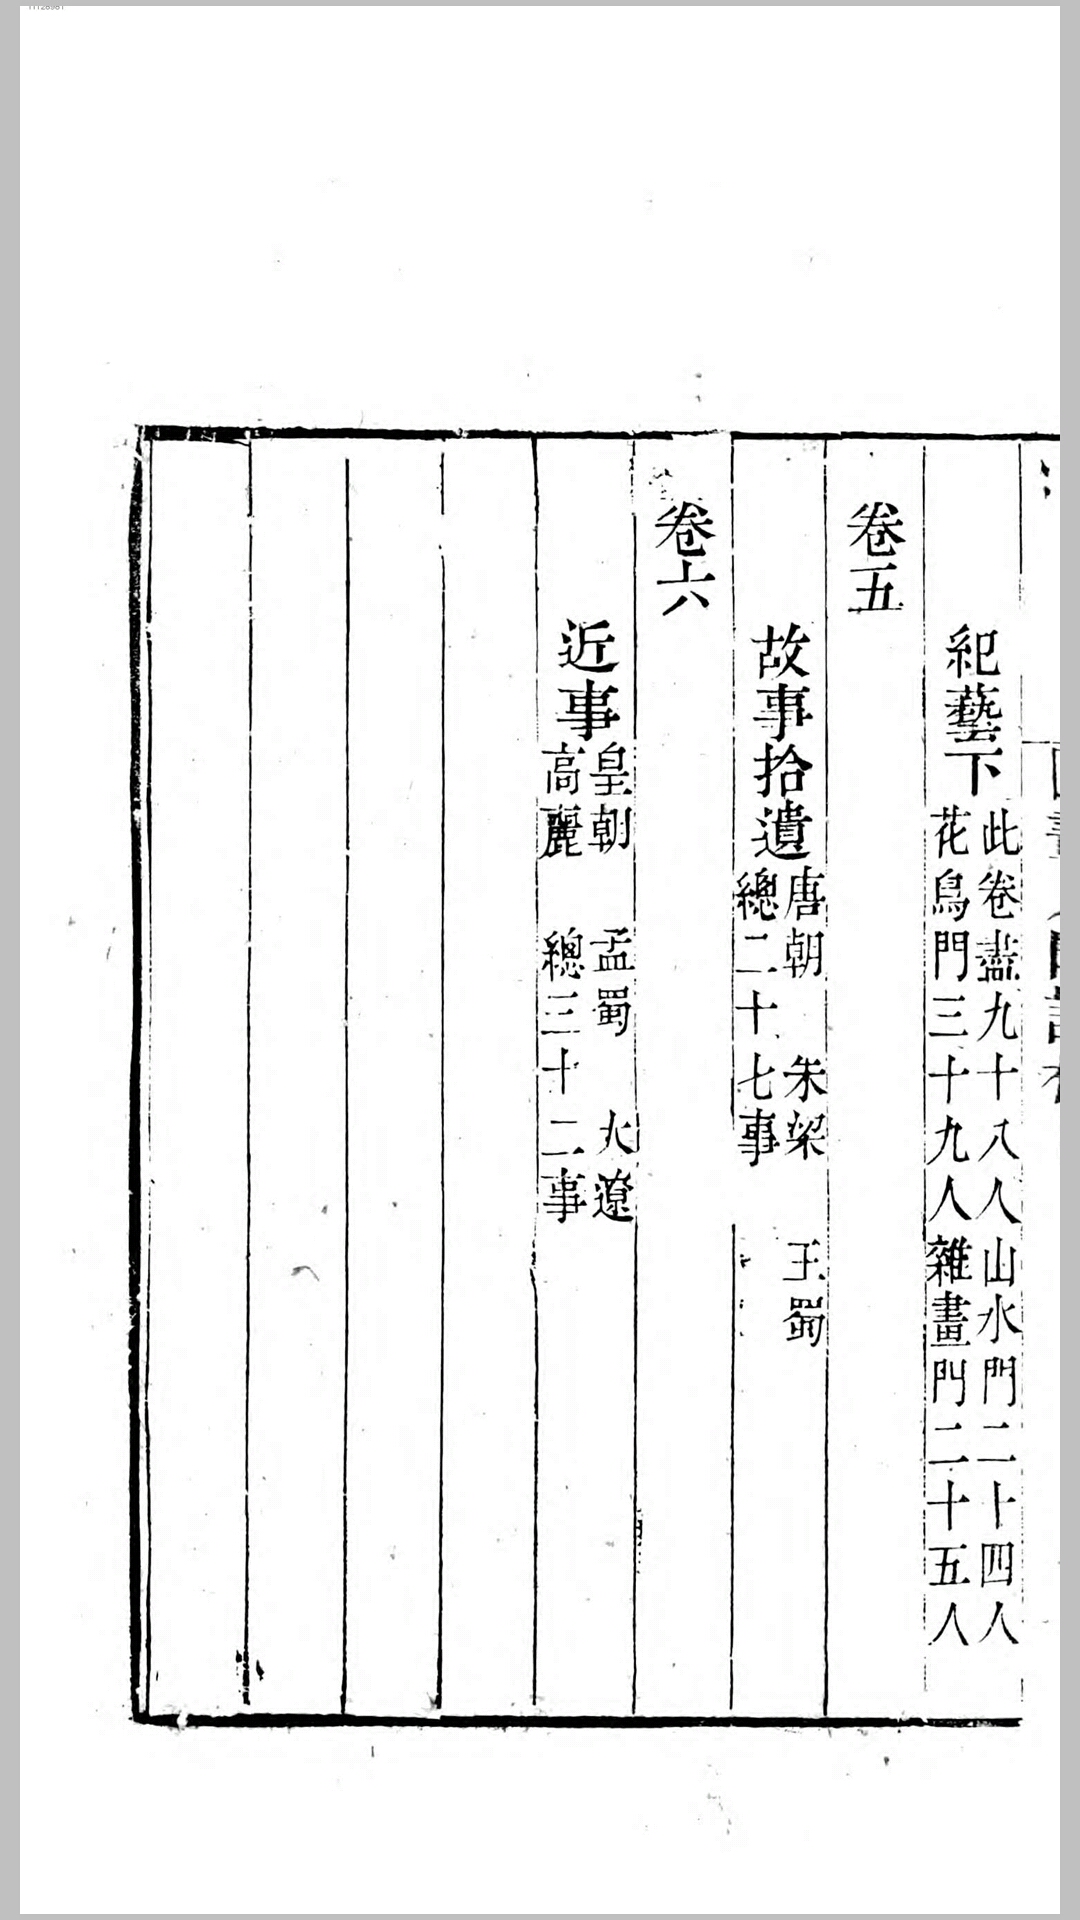 紀藝下
此卷盡九十八人山水門二十四人
花鳥門三十九人雜畫門二十五人
卷五
故事拾遺
唐朝　朱梁　王蜀
總二十七事
卷六
近事
皇朝　孟蜀　大遼
高麗　總三十二事